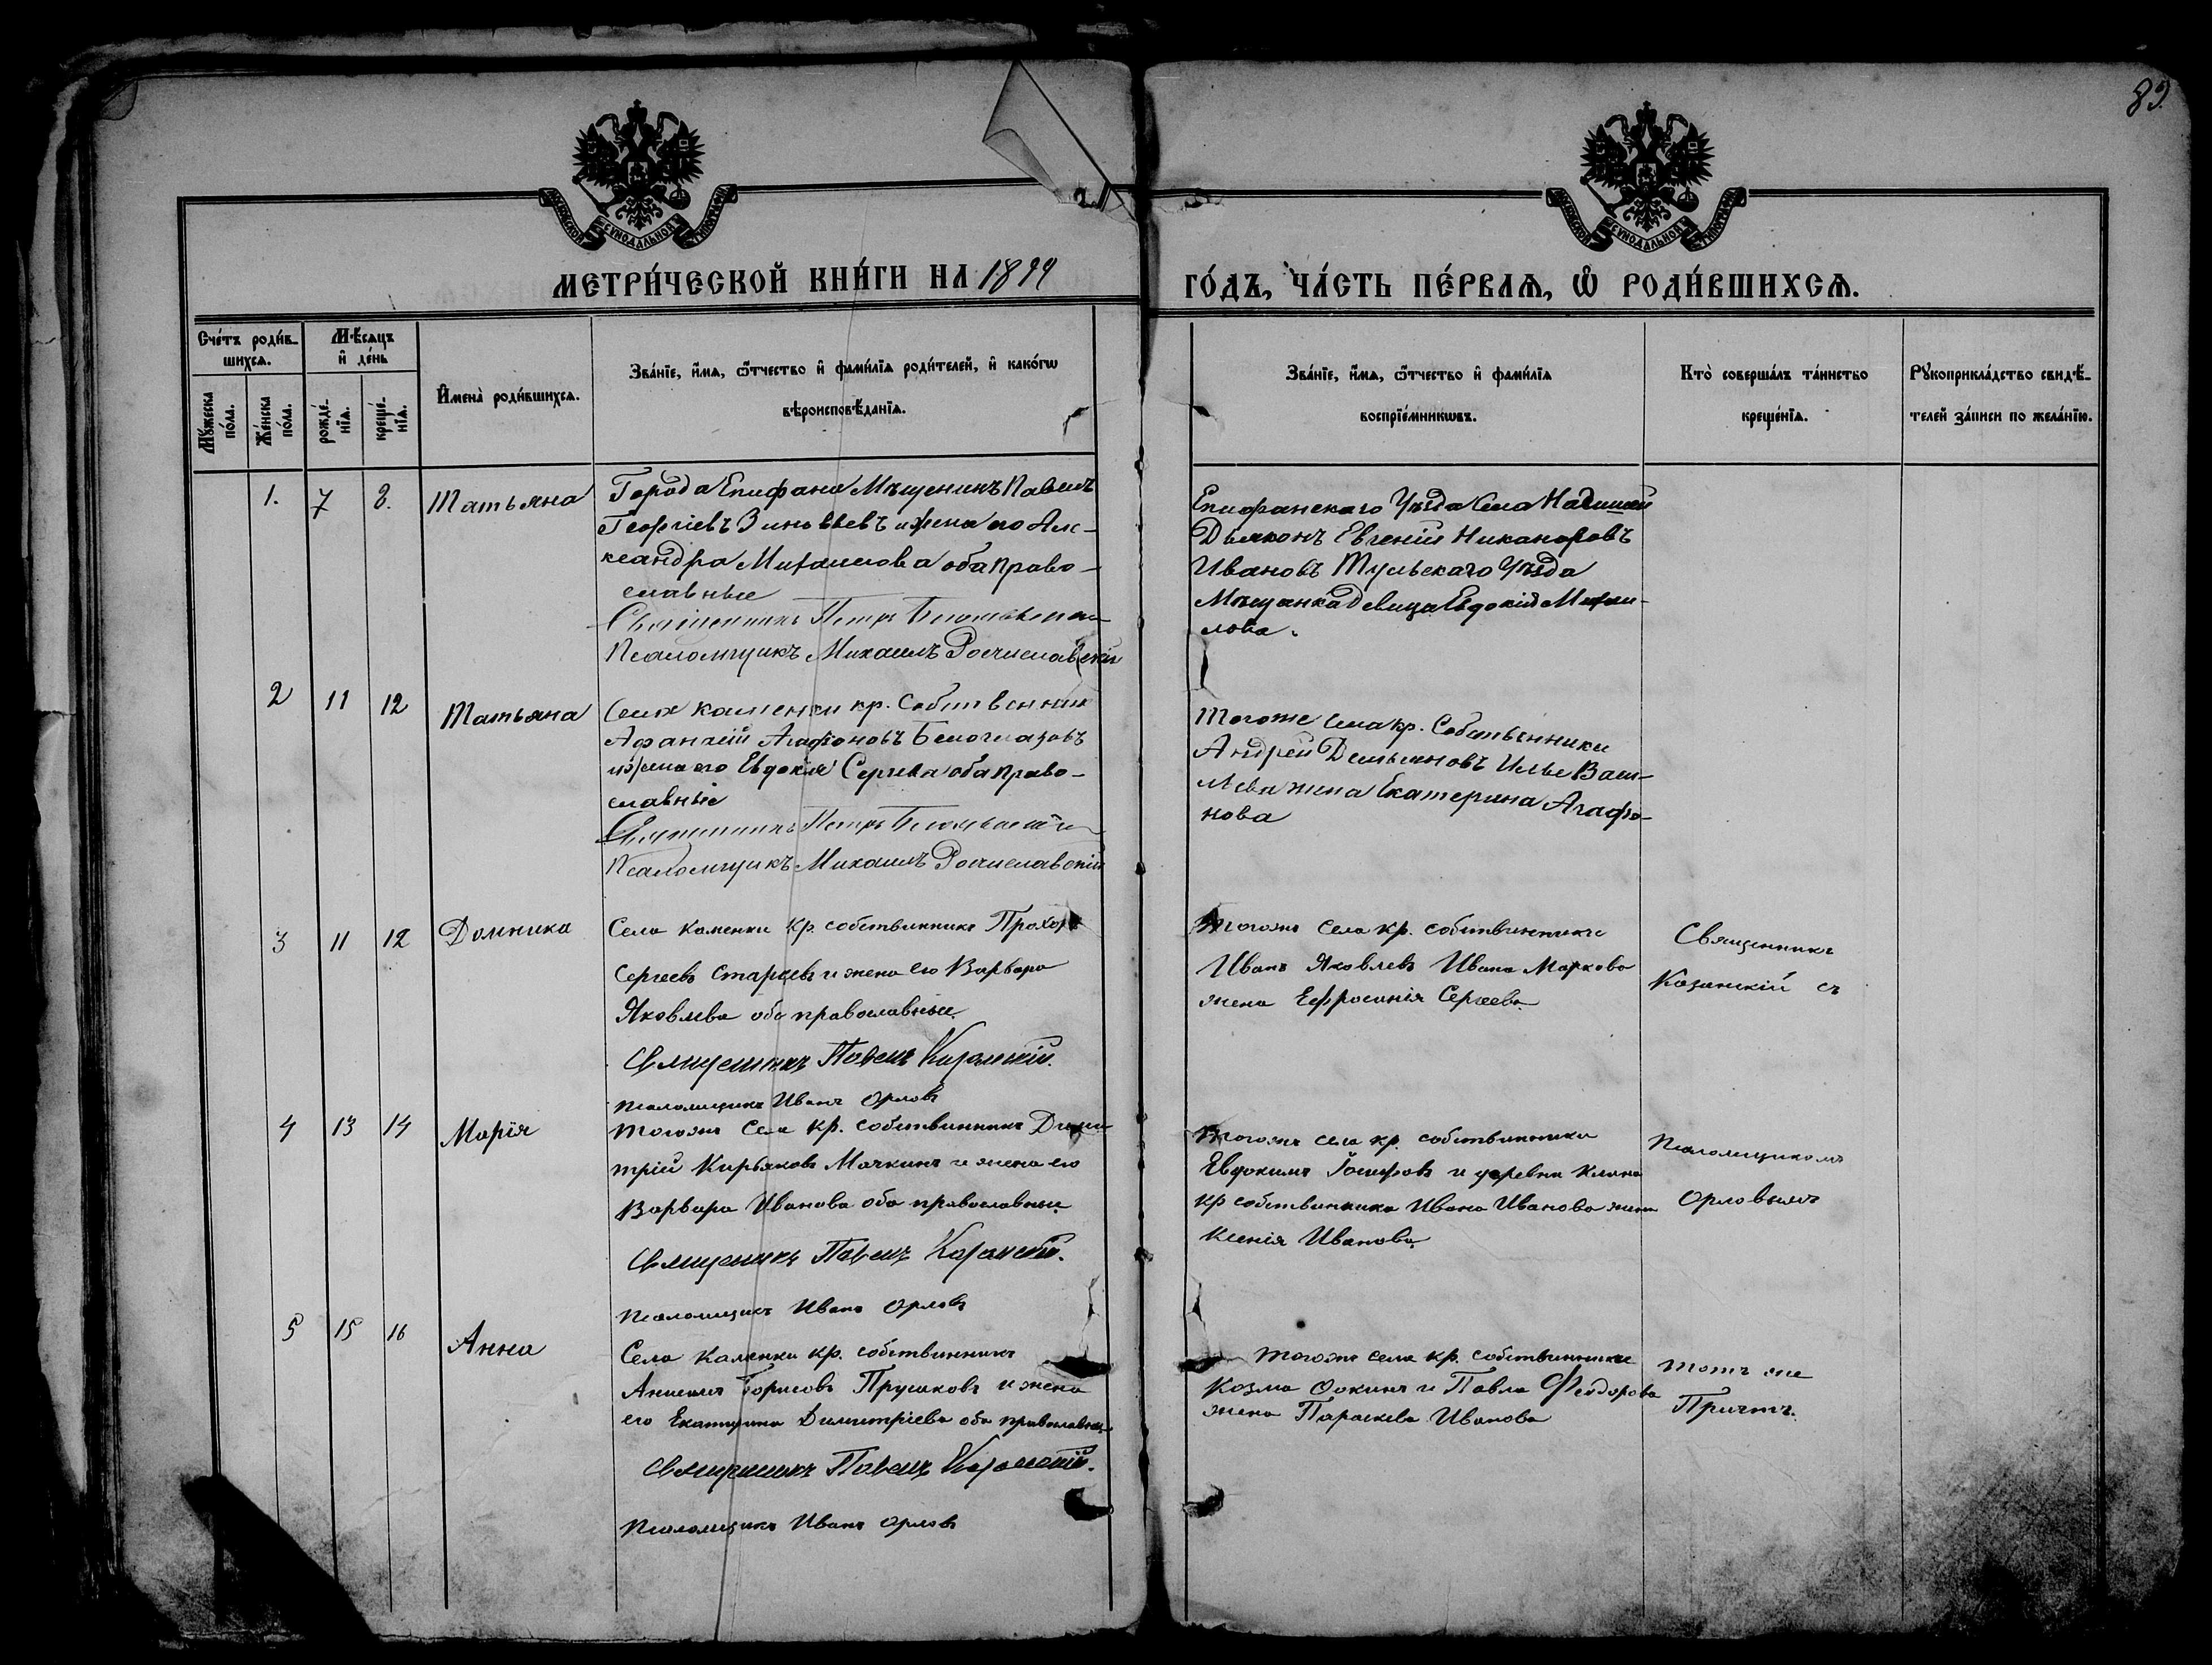 89.
МЕТРИ́ЧЕСКОЙ КНИ́ГИ НА 1899
ГО́ДЪ, ЧА́СТЬ ПЕ́РВАѦ, Ѽ РОДИ́ВШИХСѦ.
Сче́тъ роди́в-
шихсѧ.
Мꙋ́жеска
по́ла.
Же́нска
по́ла.
Мѣ́сѧцъ
и҆ де́нь
рожде́-
нїѧ.
креще́-
нїѧ.
И҆мена̀ роди́вшихсѧ.
Зва́нїе, и҆́мѧ, ѻ҆́тчество и҆ фамилїѧ роди́телей, и҆ како́гѡ
вѣроисповѣ́данїѧ.
Зва́нїе, и҆́мѧ, ѻ҆́тчество и҆ фами́лїѧ
воспрїе́мникѡвъ.
Кто̀ соверша́лъ та́инство
креще́нїѧ.
Рꙋкоприкла́дство свидѣ́-
телей за́писи по жела́нїю.
1. 7 8. Татьяна
Города Епифана Мѣщенинъ Павелъ
Георгіевъ Зиновьевъ и жена его Але-
ксандра Михаилова оба право-
славные
Священникъ Петръ
Псаломщикъ Михаилъ Ростиславскій
Епифанскаго Уѣзда Села
Дьяконъ Евгеній Никаноровъ
Ивановъ Тульскаго Уѣзда
Мѣщанка девица Евдокія Михаи-
лова.
2 11 12 Татьяна
Села Каменки кр. Собственник
Афанасій Агафоновъ Белоглазовъ
и жена его Евдокія Сергева оба право-
славные
Священникъ Петръ
Псаломщикъ Михаилъ Ростиславскій
Тогоже Села кр. Собственники
Андрей Демьяновъ Ильи Васи-
лева жена Екатерина Агафо-
нова
3 11 12 Домника
Села Каменки кр. собственникъ Прохоръ
Сергеевъ Старцевъ и жена его Варвара
Яковлева оба православные.
Священникъ Павелъ Казанскій.
псаломщикъ Иванъ Орловъ
Тогожъ села кр. собственники
Иванъ Яковлевъ Ивана Маркова
жена Ефросинія Сергеева.
Священникъ
Казанскій съ
4 13 14 Марія
Тогожъ Села кр. собственникъ Дими
трій Кирьяковъ Мачкинъ и жена его
Варвара Иванова оба православные.
Священникъ Павелъ Казанскій.
псаломщикъ Иванъ Орловъ
Тогожъ села кр. собственники
Евдокимъ Іосифовъ и деревни
кр собственника Ивана Иванова жена
Ксенія Иванова.
псаломщикомъ
Орловымъ
5 15 16 Анна
Села Каменки кр. собственникъ
Анисимъ Борисовъ Прусаковъ и жена
его Екатерина Димитріева оба православные
священникъ Павелъ Казанскій.
псаломщикъ Иванъ Орловъ
Тогожъ села кр. собственники
Козма и Павла Феодорова
жена Параскева Иванова
тотъ же
Причтъ.